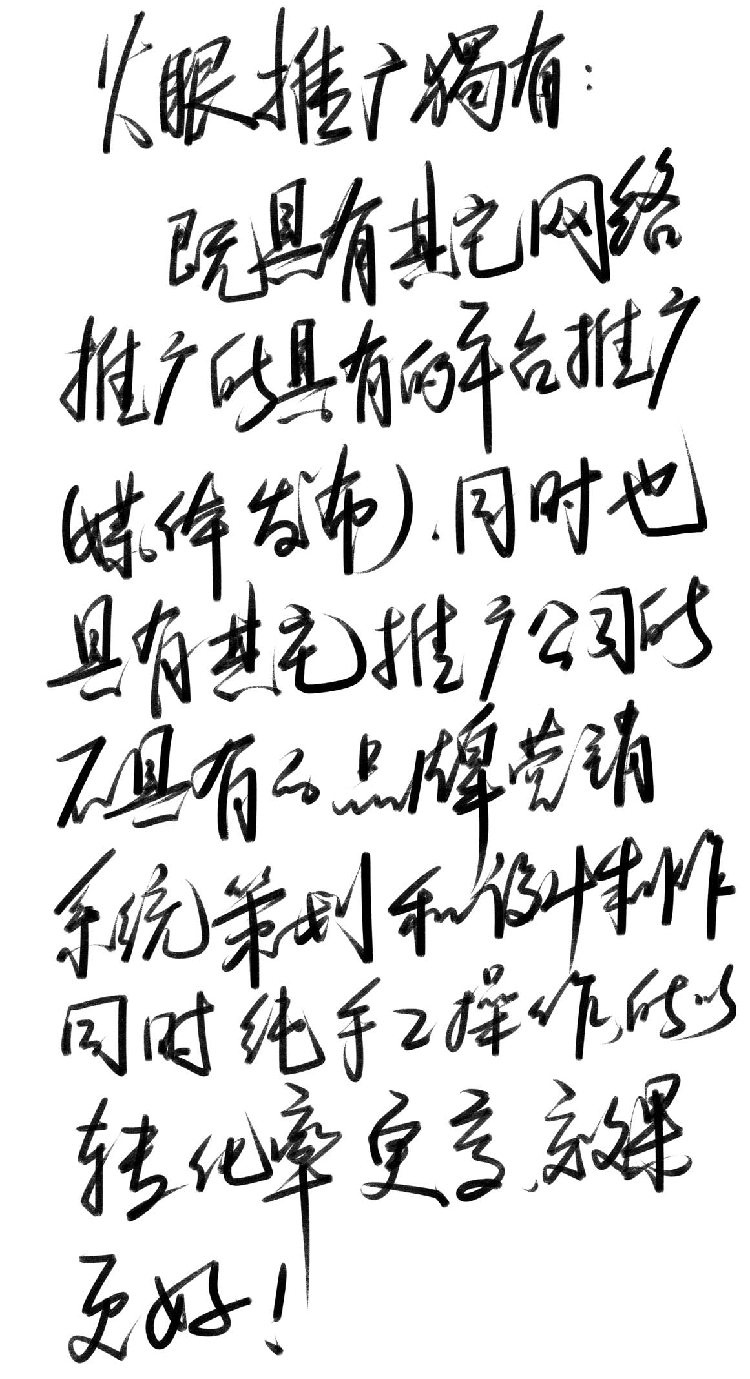 火眼推广獨有：
既具有其它网络
推广所具有的平台推广
(媒体发布).同时也
具有其它推广公司所
不具有的品牌营销
系统策划和设计制作
同时纯手工操作,所以
转化率更高,效果
更好！